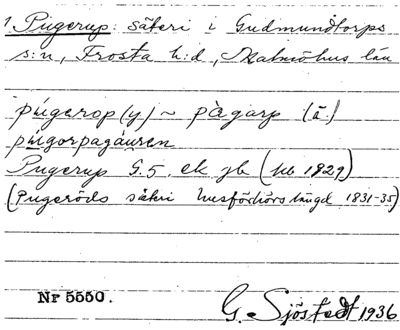 1. Pugerup: säteri i Gudmundtorps
s:n, Frosta h:d, Malmöhus län
púgerop (y) ~ pàgarp (ä.)
púgorpagáuren
Pugerup G.5. ek jb (Kb 1829)
(Pugeröds säteri husförhörslängd 1831-35)
Nr 5550.
G. Sjöstedt 1936